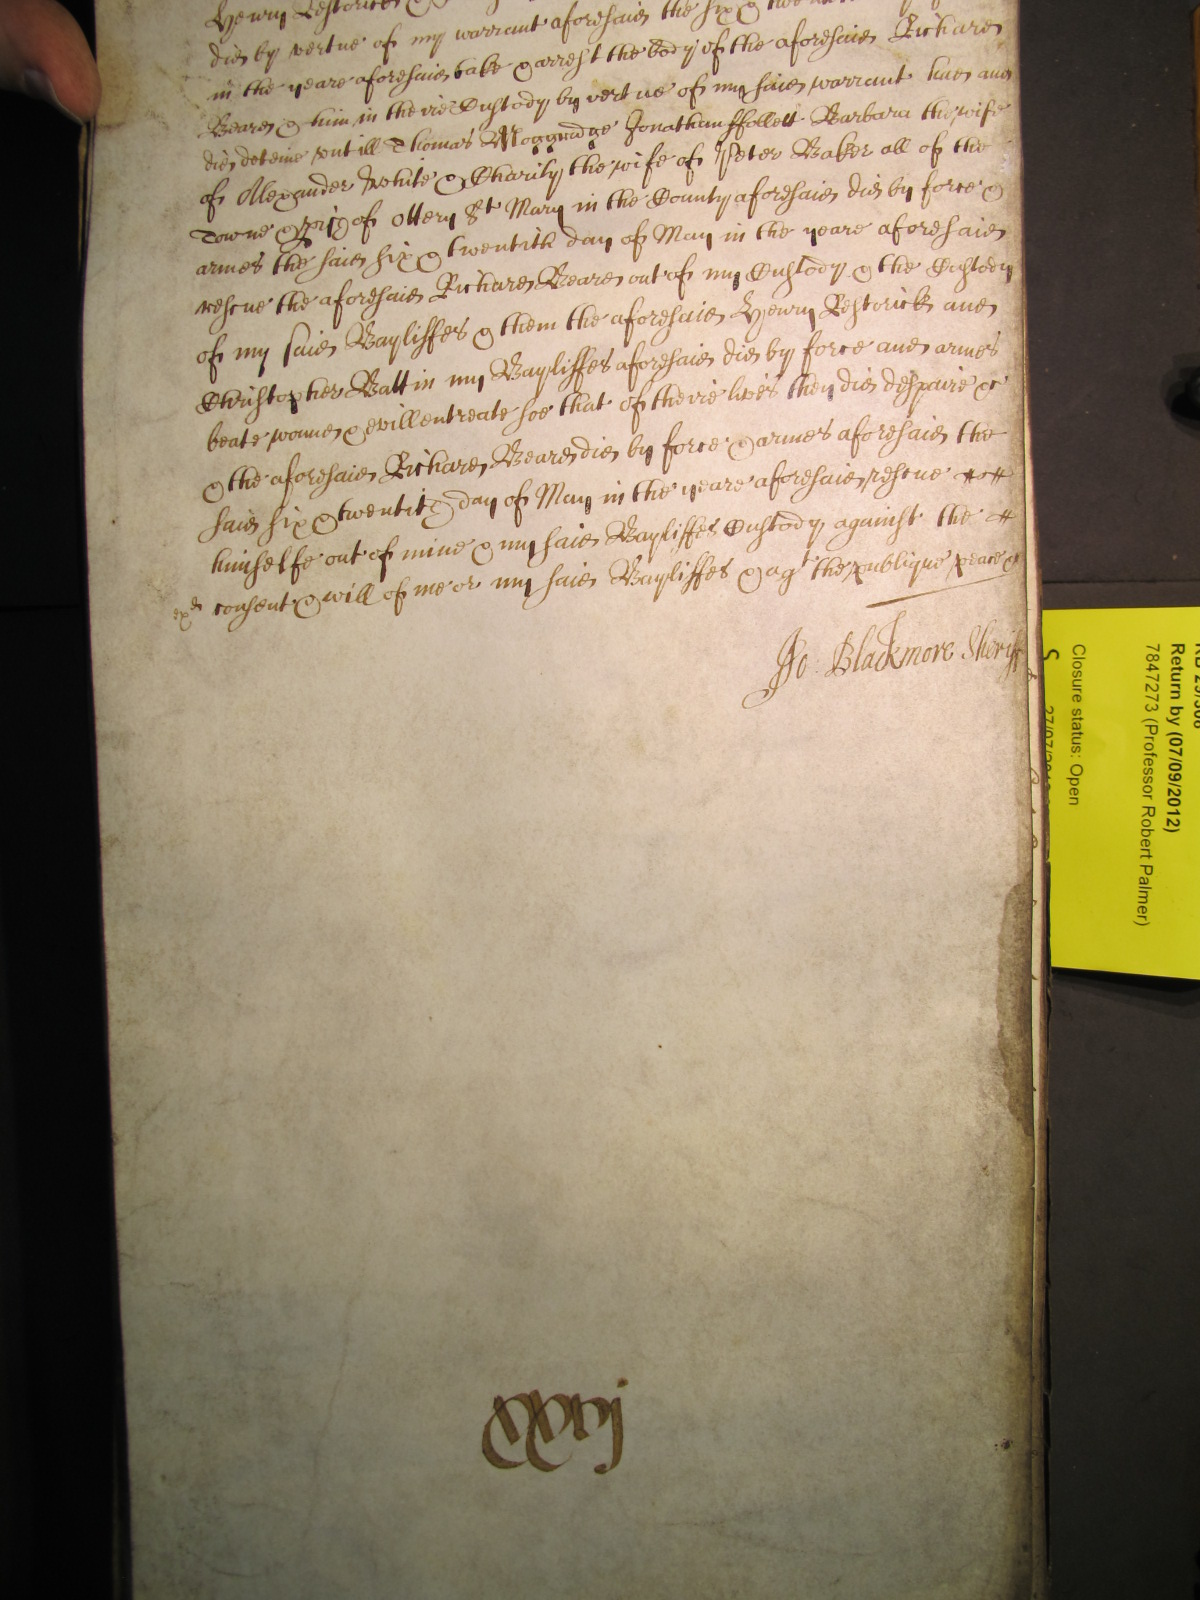 Henry Restorick &
did by vertue of my warrant aforesaid the six & twen
in the yeare aforesaid take & arrest the body of the aforesaid Richard
Beard & him in their Custody by vertue of my said warrant have and
did deteine untill Thomas Moggridge Jonathan ffollett Barbara the wife
of Alexander White & Charity the wife of Peter Baker all of the
Towne & of Ottery St Mary in the County aforesaid did by force &
armes the said six & twentith day of May in the yeare aforesaid
rescue the aforesaid Richard Beard out of my Custody & the Custody
of my said Bayliffes & them the aforesaid Henry Restorick and
Christopher Batt in my Bayliffes aforesaid did by force and armes
beate wound & evill entreate soe that of theire lives they did despaire &c
& the aforesaid Richard Beard did by force & armes aforesaid the
said six & twentith day of May in the yeare aforesaid rescue
himselfe out of mine & my said Bayliffes Custody against the
exd consent & will of me or my said Bayliffes & agt the publique peace &c
Jo: Blackmore Sheriff
Return by (07/09/2012)
7847273 (Professor Robert Palmer)
Closure status: Open
S
27/07/201
xxvj